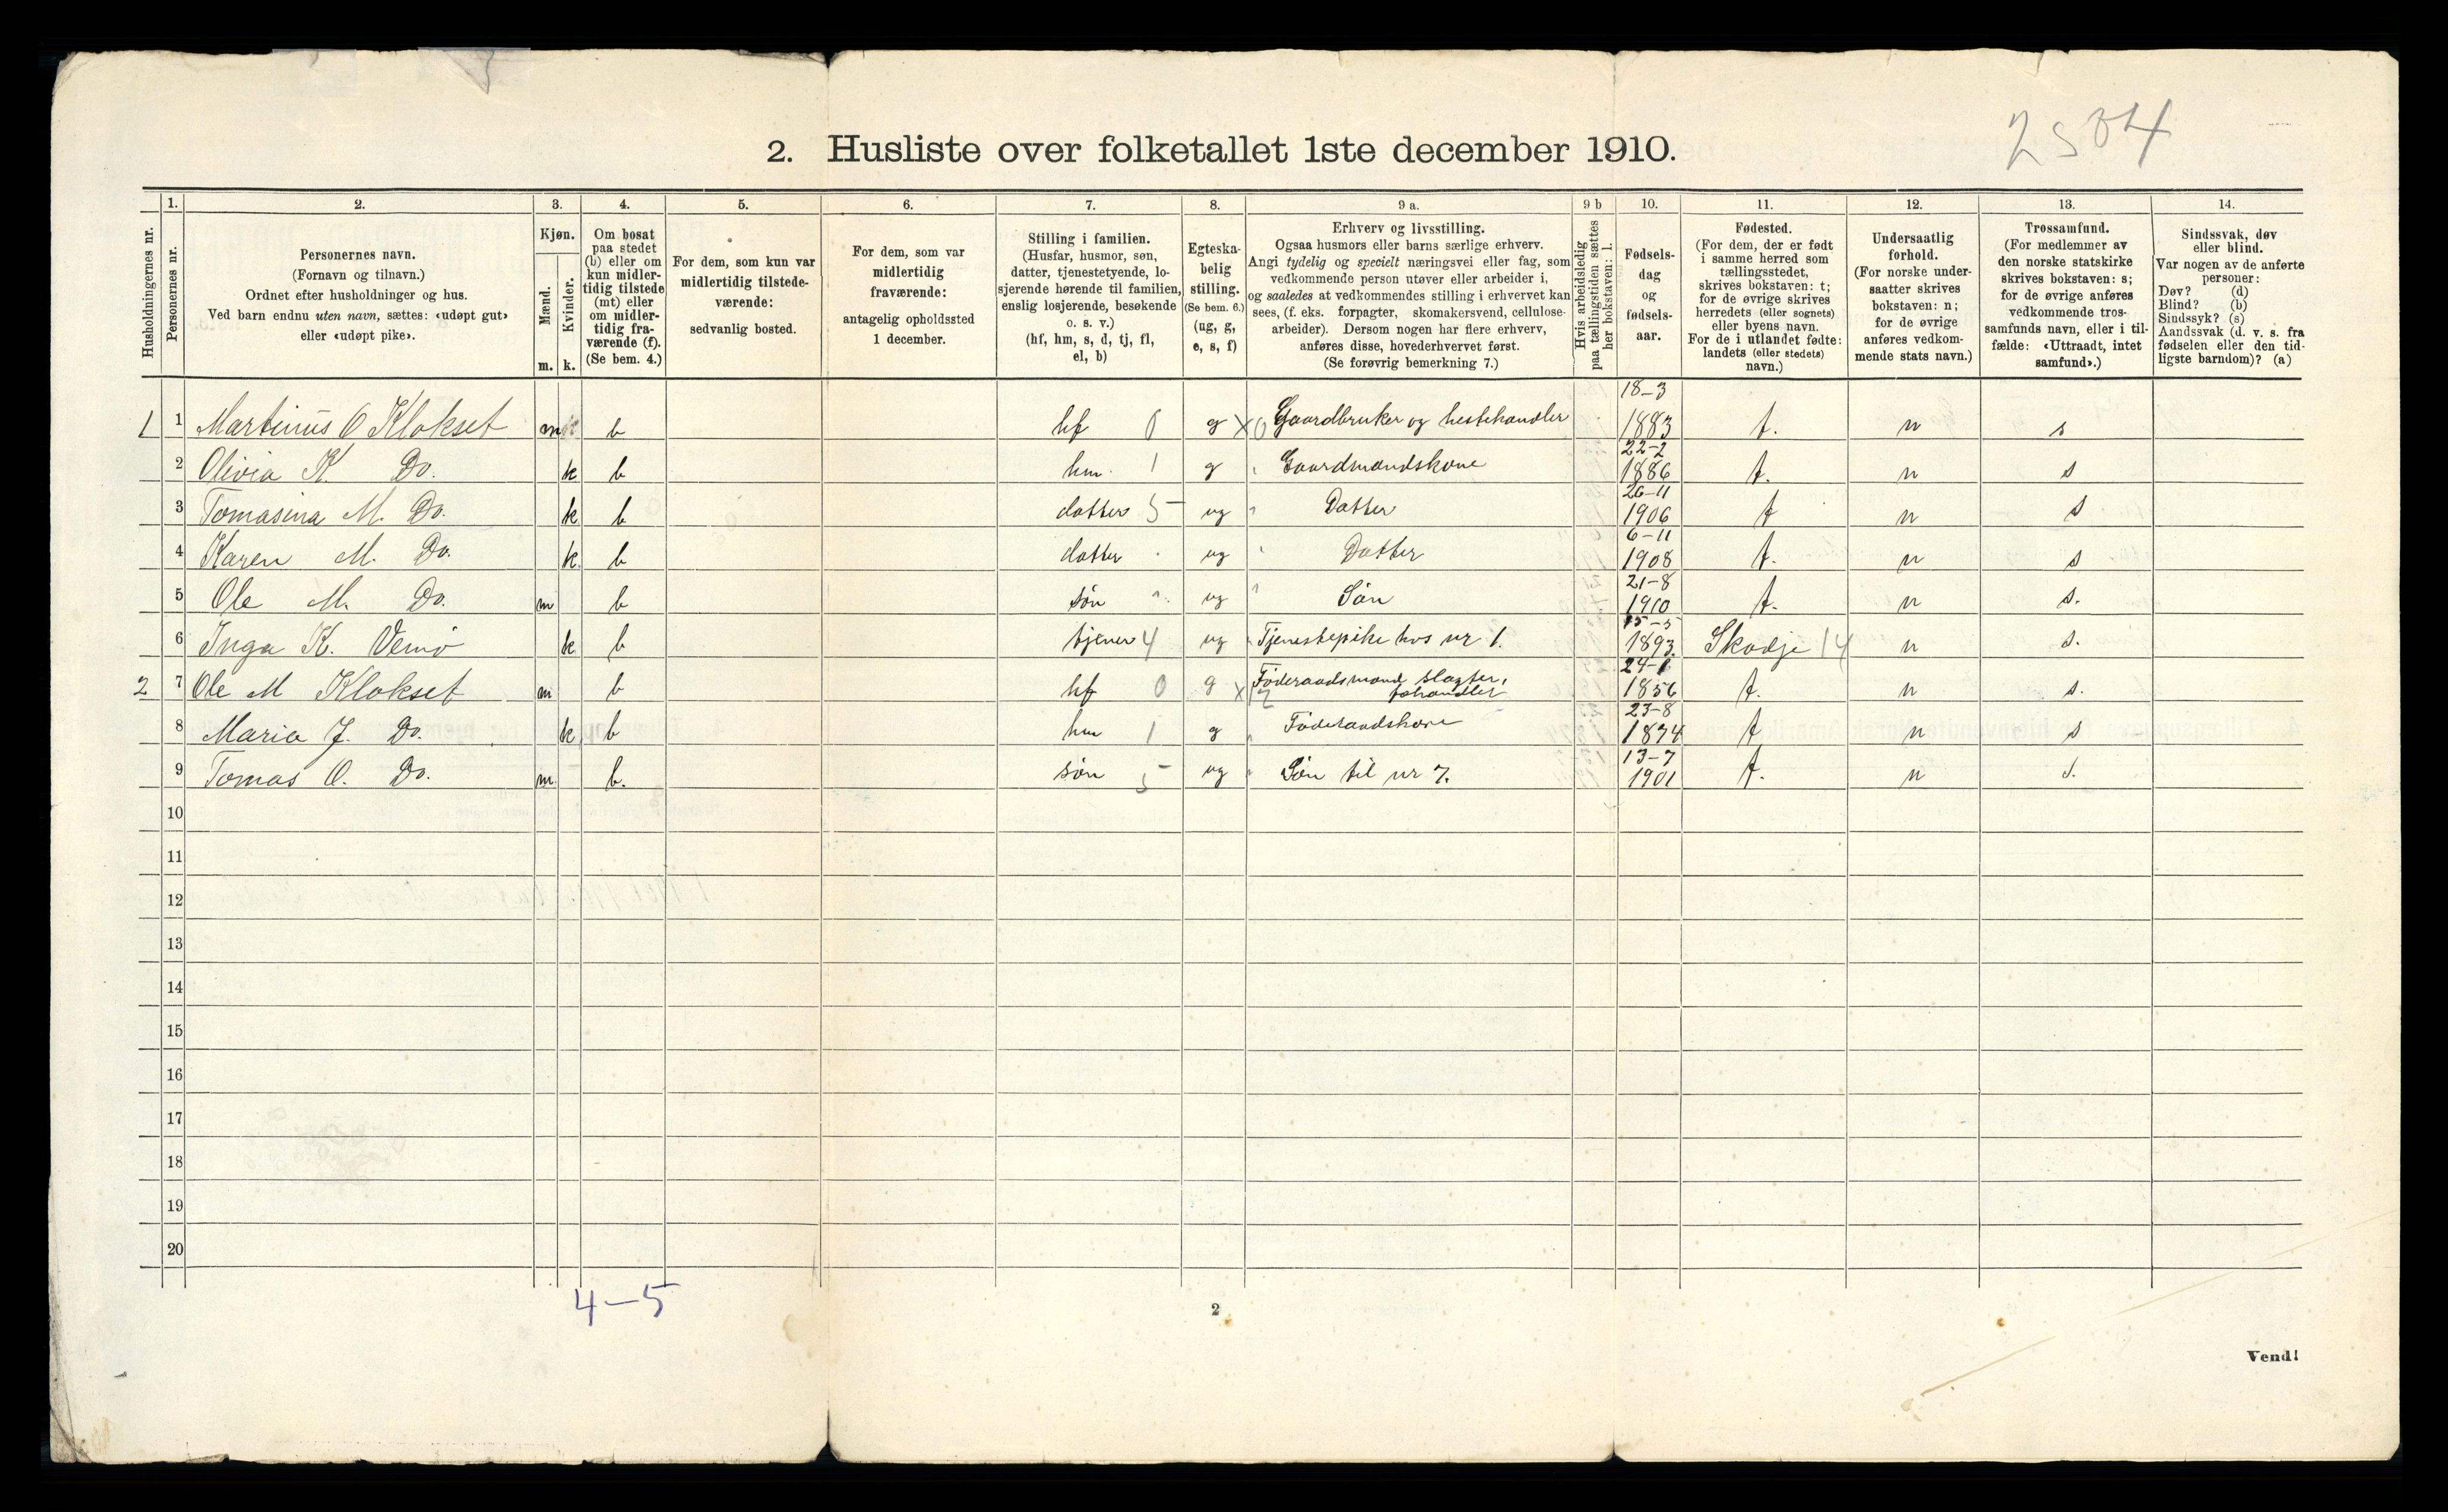 2584
2. Husliste over folketallet 1ste december 1910.
Husholdningernes nr.
1.
Personernes nr.
2.
Personernes navn.
(Fornavn og tilnavn.)
Ordnet efter husholdninger og hus.
Ved barn endnu uten navn, sættes: «udøpt gut»
eller «udøpt pike».
3.
Kjøn.
Mænd.
Kvinder.
m. k.
4.
Om bosat
paa stedet
(b) eller om
kun midler-
tidig tilstede
(mt) eller
om midler-
tidig fra-
værende (f).
(Se bem. 4.)
5.
For dem, som kun var
midlertidig tilstede-
værende:
sedvanlig bosted.
6.
For dem, som var
midlertidig
fraværende:
antagelig opholdssted
1 december.
7.
Stilling i familien.
(Husfar, husmor, søn,
datter, tjenestetyende, lo-
sjerende hørende til familien,
enslig losjerende, besøkende
o. s. v.)
(hf, hm, s, d, tj, fl,
el, b)
8.
Egteska-
belig
stilling.
(Se bem. 6.)
(ug, g,
e, s, f)
9 a.
Erhverv og livsstilling.
Ogsaa husmors eller barns særlige erhverv.
Angi tydelig og specielt næringsvei eller fag, som
vedkommende person utøver eller arbeider i,
og saaledes at vedkommendes stilling i erhvervet kan
sees, (f. eks. forpagter, skomakersvend, cellulose-
arbeider). Dersom nogen har flere erhverv,
anføres disse, hovederhvervet først.
(Se forøvrig bemerkning 7.)
9 b
Hvis arbeidsledig
paa tællingstiden sættes
her bokstaven: l.
10.
Fødsels-
dag
og
fødsels-
aar.
11.
Fødested.
(For dem, der er født
i samme herred som
tællingsstedet,
skrives bokstaven: t;
for de øvrige skrives
herredets (eller sognets)
eller byens navn.
For de i utlandet fødte:
landets (eller stedets)
navn.)
12.
Undersaatlig
forhold.
(For norske under-
saatter skrives
bokstaven: n;
for de øvrige
anføres vedkom-
mende stats navn.)
13.
Trossamfund.
(For medlemmer av
den norske statskirke
skrives bokstaven: s;
for de øvrige anføres
vedkommende tros-
samfunds navn, eller i til-
fælde: «Uttraadt, intet
samfund».)
14.
Sindssvak, døv
eller blind.
Var nogen av de anførte
personer:
Døv? (d)
Blind? (b)
Sindssyk? (s)
Aandssvak (d. v. s. fra
fødselen eller den tid-
ligste barndom)? (a)
1 1 Martinus O Klokset m b hf 0 g x 0 Gaardbruker og hestehandler 18-3 1883 t. n s
2 Olivia K. Do. k b hm. 1 g Gaardmandskone 22-2 1886 t. n s
3 Tomasina M. Do. k b datter 5 ug Datter 26-11 1906 t n s
4 Karen M. Do. k. b datter ug Datter 6-11 1908 t. n s
5 Ole M. Do. m b søn ug Søn 21-8 1910 t. n s.
6 Inga K. Vemø k b tjener 4 ug Tjenestepike hos nr 1. 15-5 1893. Skodje 14 n s.
2 7 Ole M Klokset m b hf 0 g x Føderaadsmand slagter, fehandler 24-1 1856 t. n s.
8 Maria J. Do. k b hm 1 g Føderaadskone 23-8 1874 t n s
9 Tomas O. Do. m b. søn 5 ug Søn til nr 7. 13-7 1901 t. n s.
10
11
12
13
14
15
16
17
18
19
20
4-5
2
Vend!